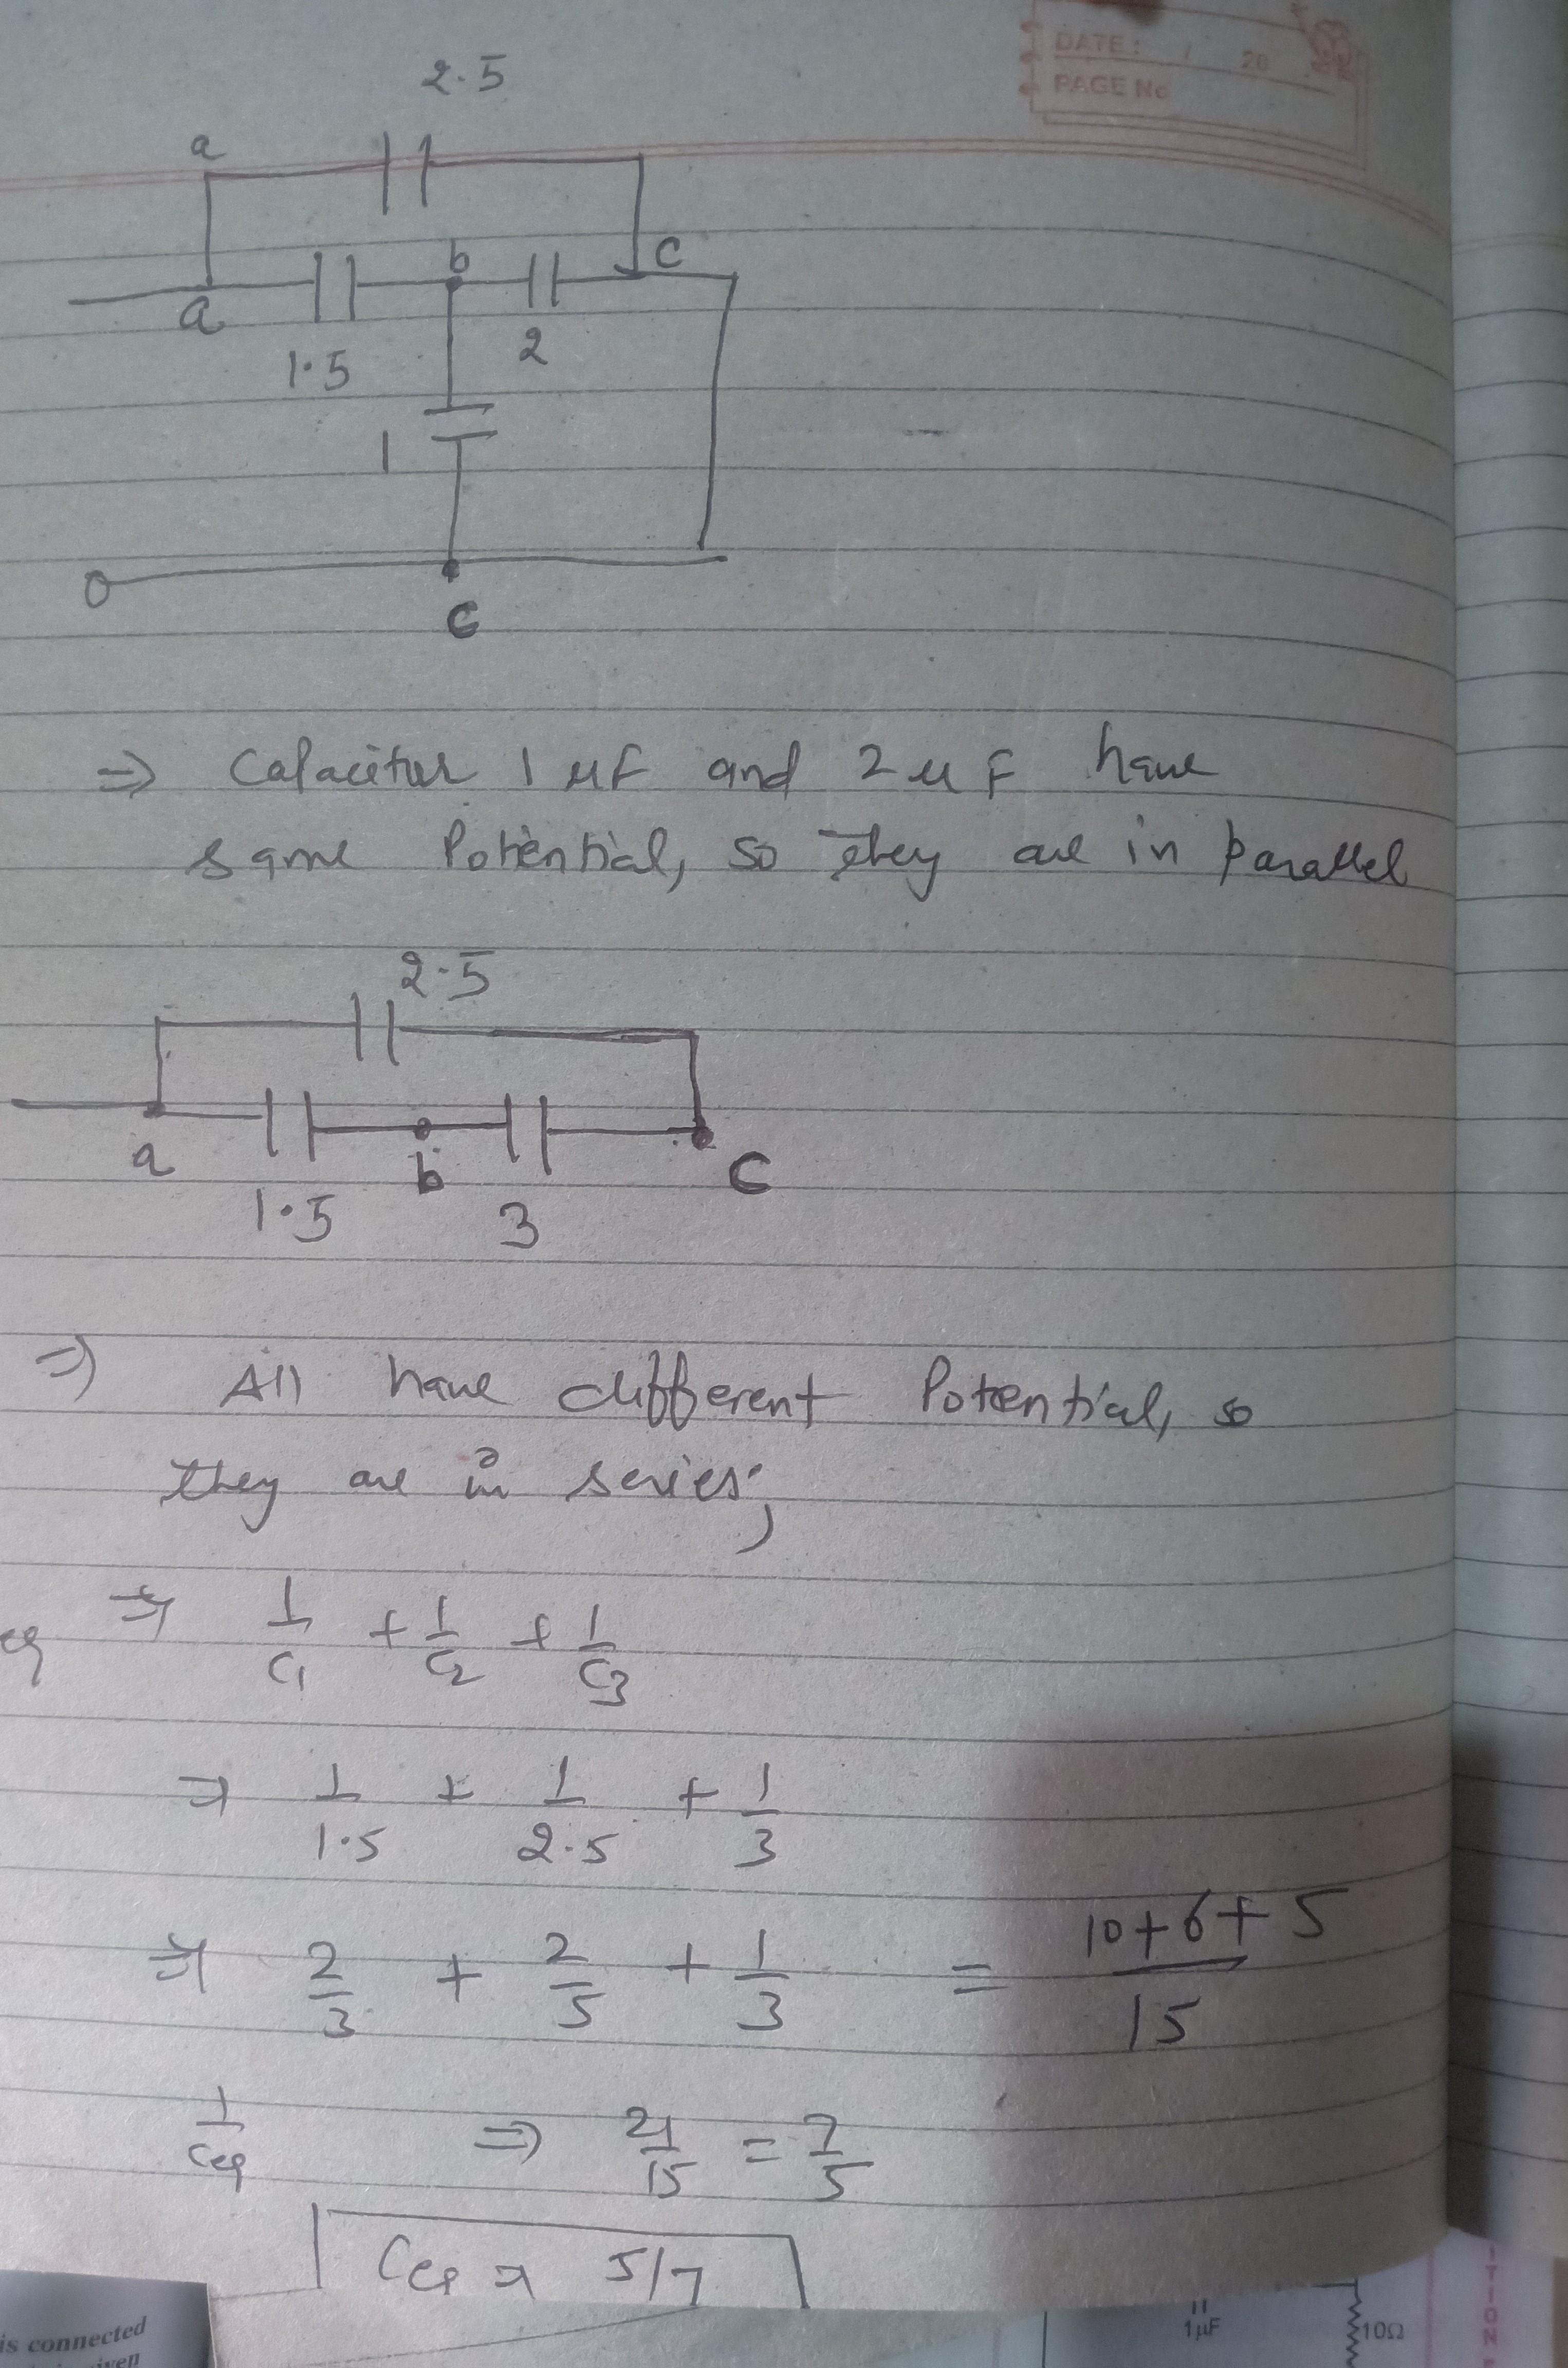 DATE: / 20
PAGE No
2.5
a
b
c
a
1.5
2
1
c
⇒ Capacitor 1 μF and 2 μF have
same Potential, so they are in parallel
2.5
a
b
c
1.5
3
⇒ All have different Potential, so
they are in series;
eq ⇒ 1/C1 + 1/C2 + 1/C3
⇒ 1/1.5 + 1/2.5 + 1/3
⇒ 2/3 + 2/5 + 1/3 = 10+6+5/15
1/Ceq ⇒ 21/15 = 7/5
Ceq = 5/7
is connected
1μF
10Ω